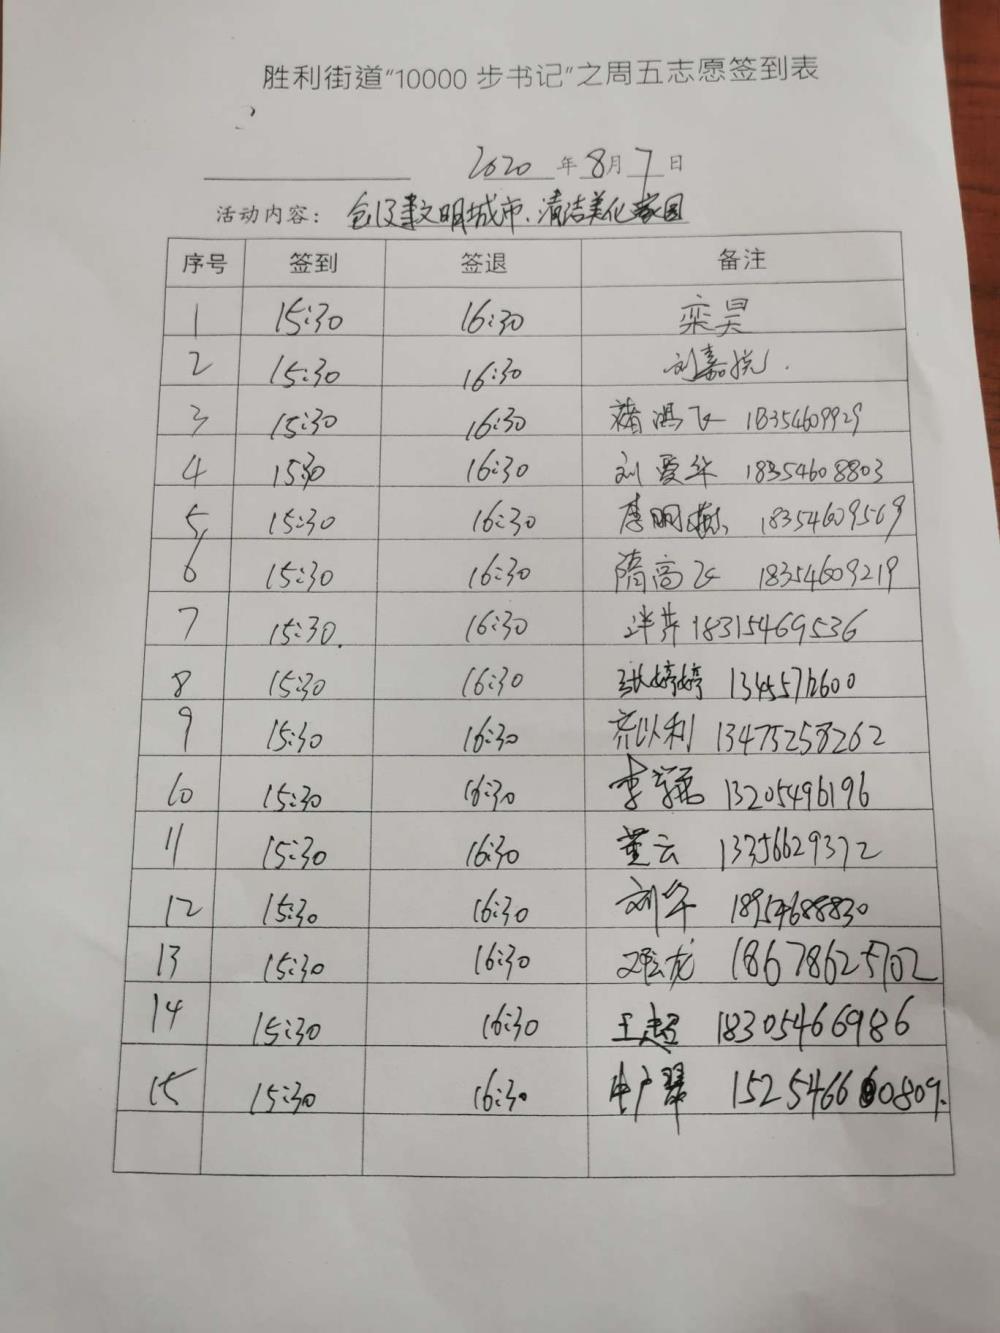 胜利街道“10000 步书记”之周五志愿签到表
2020 年 8 月 7 日
活动内容: 创建文明城市、清洁美化家园
序号 签到 签退 备注
1 15:30 16:30 栾昊
2 15:30 16:30 刘嘉悦
3 15:30 16:30 褚鸿飞 18354609929
4 15:30 16:30 刘爱华 18354608803
5 15:30 16:30 李明 18354609509
6 15:30 16:30 隋高飞 18354609219
7 15:30 16:30 18315469536
8 15:30 16:30 张婷婷 13455712600
9 15:30 16:30 齐以利 13475258262
10 15:30 16:30 李 13205496196
11 15:30 16:30 董云 13356629372
12 15:30 16:30 刘华 18954688830
13 15:30 16:30 邓云龙 18678625702
14 15:30 16:30 王超 18305466986
15 15:30 16:30 15254660809